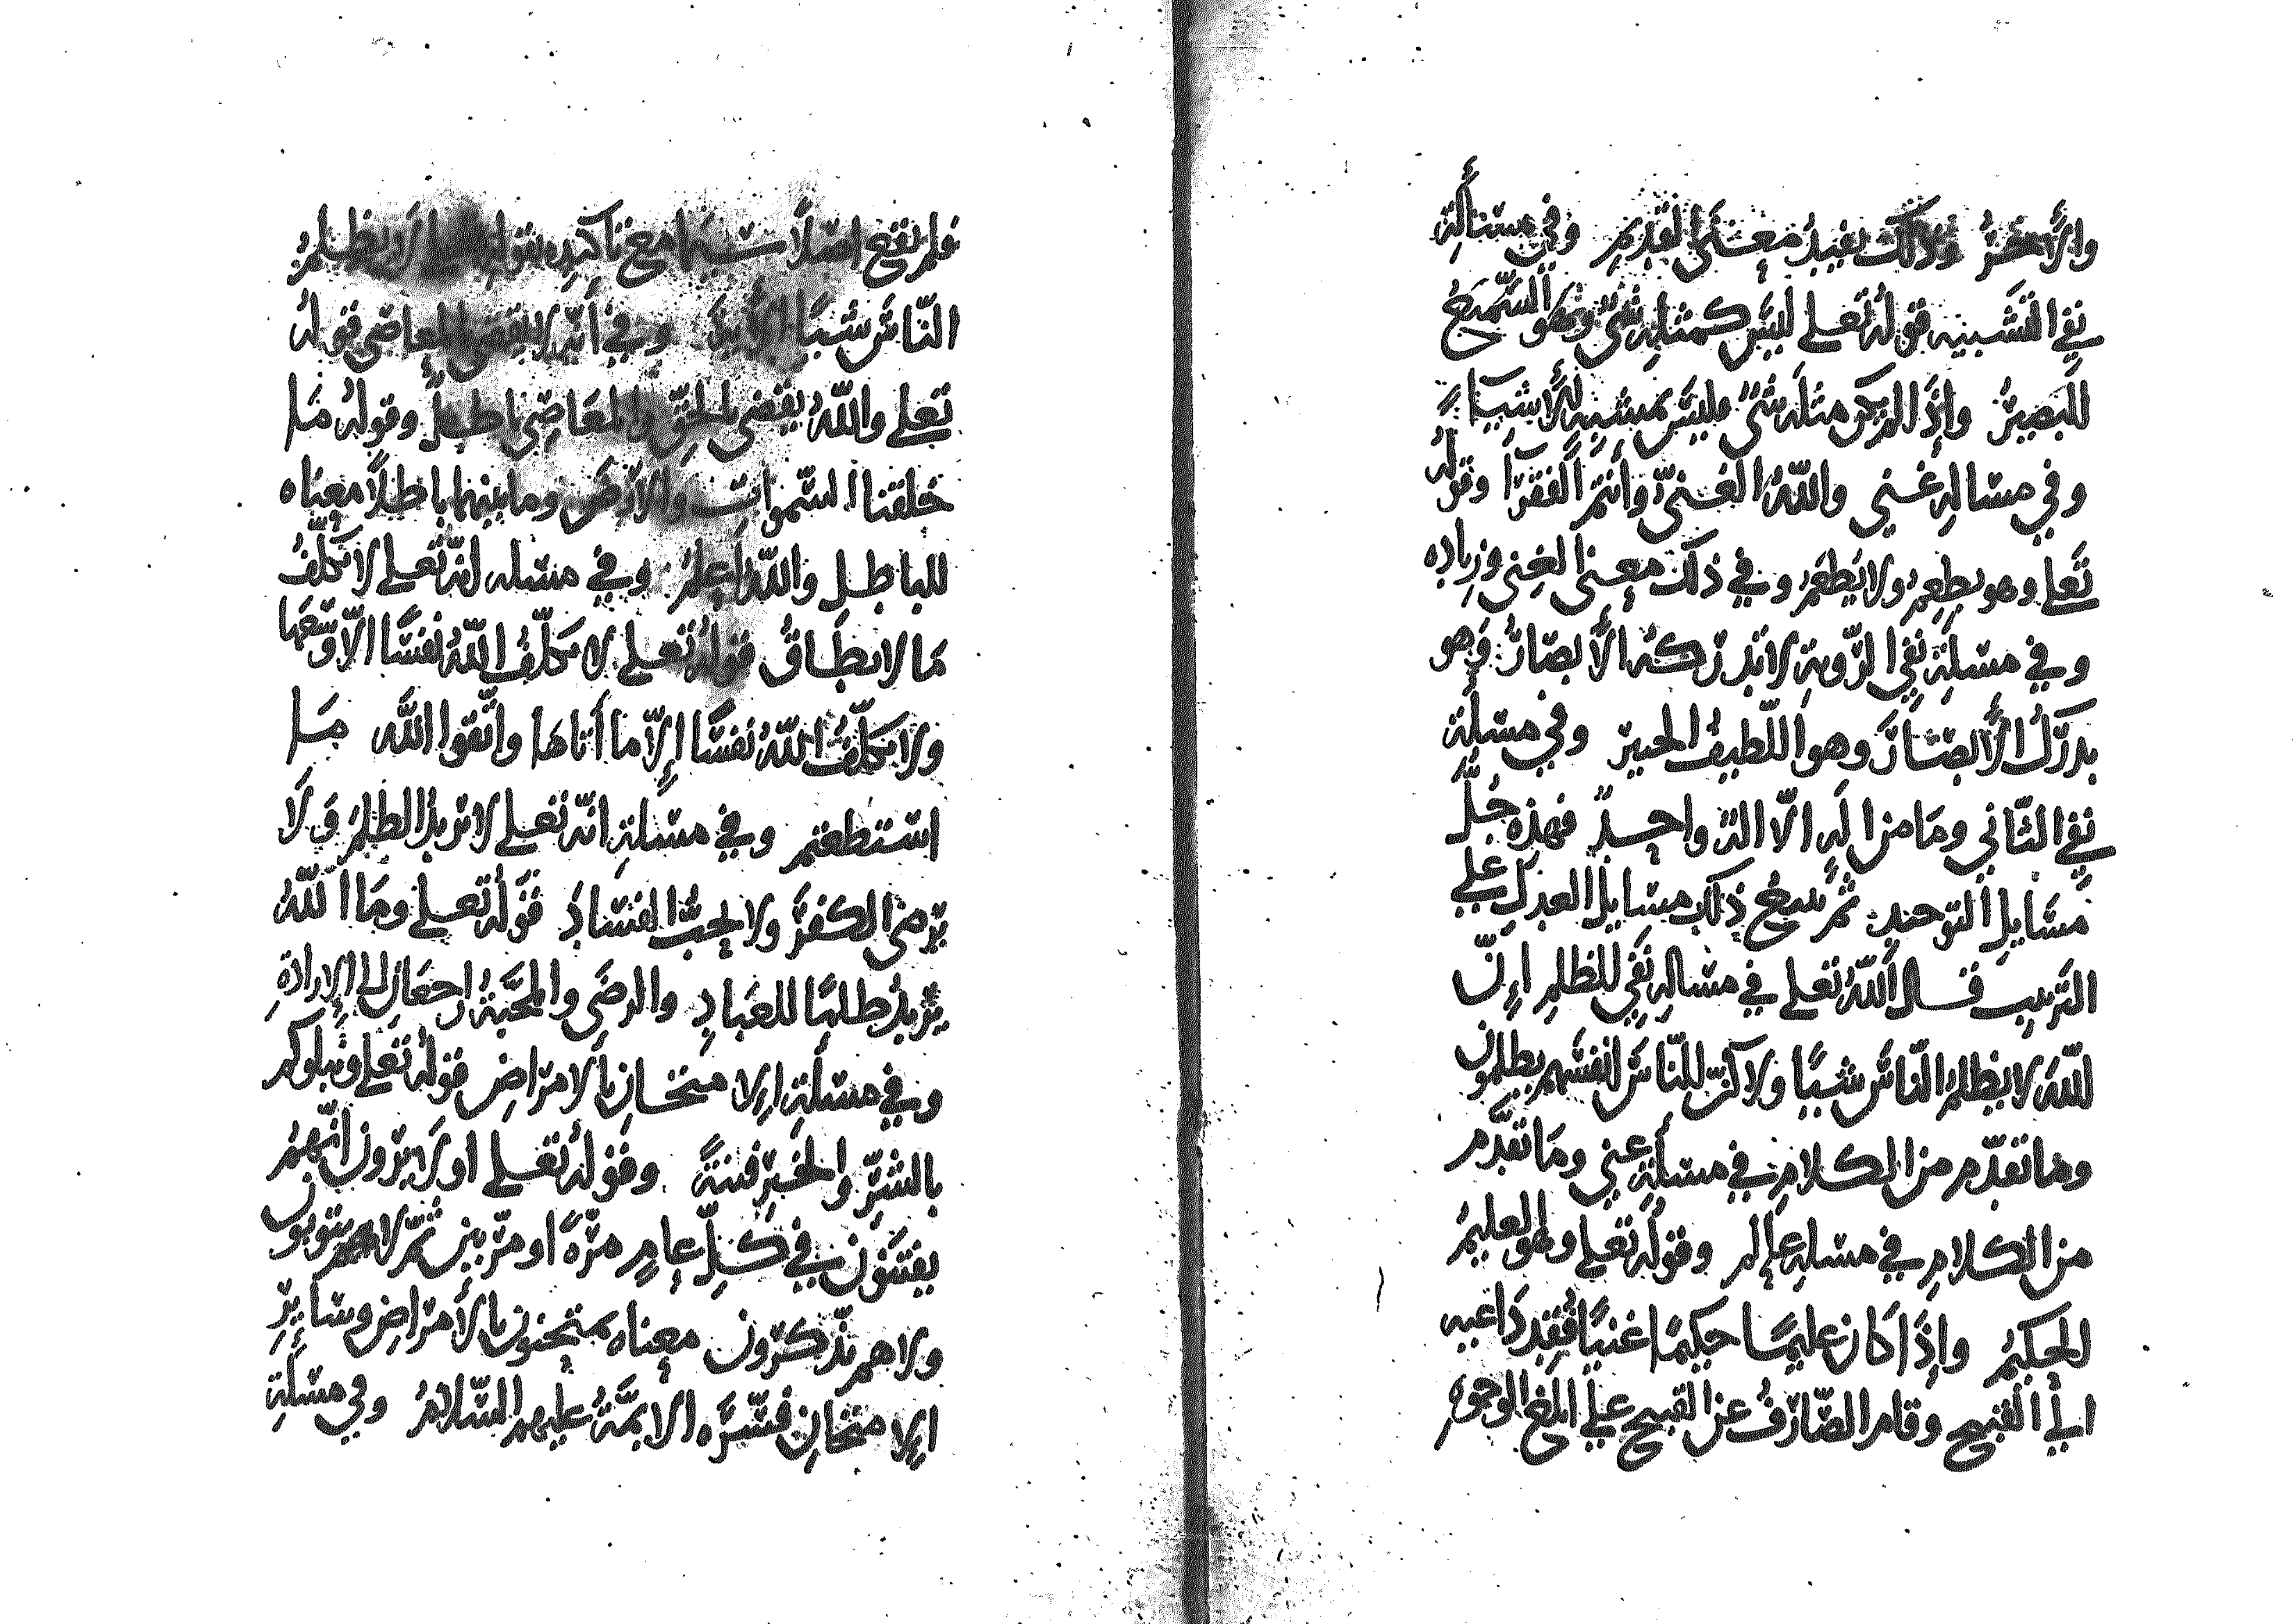 والأخر وذلك يفيد معنى القديم وفي مسئألة
نفي التشبيه قوله تعلى ليس كمثله شي وهو السميع
البصير وإذا لم يكن مثله شي فليس بمشبه للأشياء
وفي مسالة غني والله الغني وأنتم الفقرآ وقوله
تعلى وهو يطعم ولا يطعم وفي ذلك معنى الغنى وزياده
وفي مسلة نفي الروية لا تدركه الأبصار وهو
يدرك الأبصار وهو اللطيف الخبير وفي مسلة
نفي الثاني وما من اله الا اله واحد فهذه جل
مسايل التوحيد ثم نتبع ذلك مسايل العدل على
الترتيب قال الله تعلى في مسالة نفي الظلم إن
الله لا يظلم الناس شيا ولاكن الناس انفسهم يظلمون
وما تقدم من الكلام في مسألة غني وما تقدم
من الكلام في مسلة عالم وقوله تعلى وهو العليم
الحكيم وإذا كان عليما حكيما غنيا فقد داعيه
الى القبيح وقام الصارف عن القبيح على ابلغ الوجوه
فلم يقع اصلا سيما مع تاكيده بقوله تعلى لا يظلم
الناس شيا وفي انه لا يقضي المعاصي قوله
تعلى والله يقضي بالحق والمعاصي باطل وقوله ما
خلقنا السموات والارض وما بينهما باطلا معناه
للباطل والله اعلم وفي مسله انه تعلى لا يكلف
ما لا يطاق قوله تعلى لا يكلف الله نفسا الا وسعها
ولا يكلف الله نفسا إلا ما أتاها واتقوا الله ما
استطعتم وفي مسلة انه تعلى لا يريد الظلم ولا
يرضى الكفر ولا يحب الفساد قوله تعلى وما الله
يريد ظلما للعباد والرضى والمحبة راجعان الى الإرادة
وفي مسألة الامتحان بالامراض قوله تعلى ونبلوكم
بالشر والخير فتنة وقوله تعلى اولا يرون انهم
يفتنون في كل عام مرة او مرتين ثم لا يتوبون
ولا هم يذكرون معناه يمتحنون بالأمراض وسائر
الامتحان فسره الايمة عليهم السلام وفي مسلة